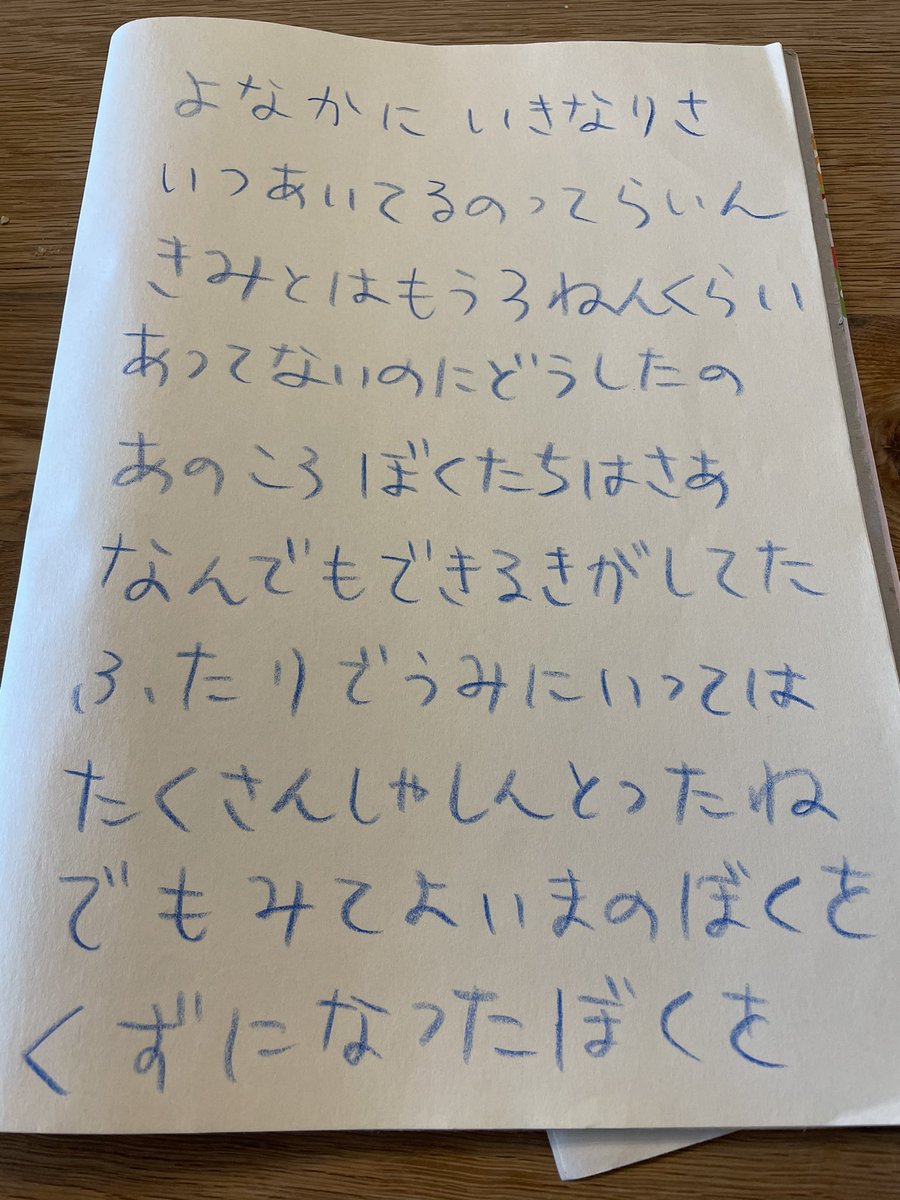 よなかに いきなりさ
いつあいてるのってらいん
きみとはもうろねんくらい
あってないのにどうしたの
あのころ ぼくたちはさあ
なんでもできるきがしてた
ふたりでうみにいっては
たくさんしゃしんとったね
でもみてよいまのぼくを
くずになったぼくを